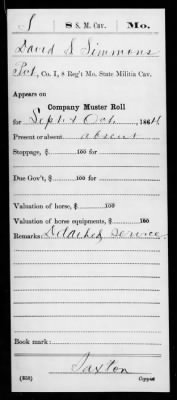 S | 8 S. M. Cav. | Mo.
David S Simmons
Pvt, Co. I, 8 Reg't Mo. State Militia Cav.
Appears on
Company Muster Roll
for Sept & Oct, 1864
Present or absent absent
Stoppage, $ 100 for
Due Gov't, $ 100 for
Valuation of horse, $ 100
Valuation of horse equipments, $ 100
Remarks: Detached service
Book mark:
Saxton
(858) Copyist.